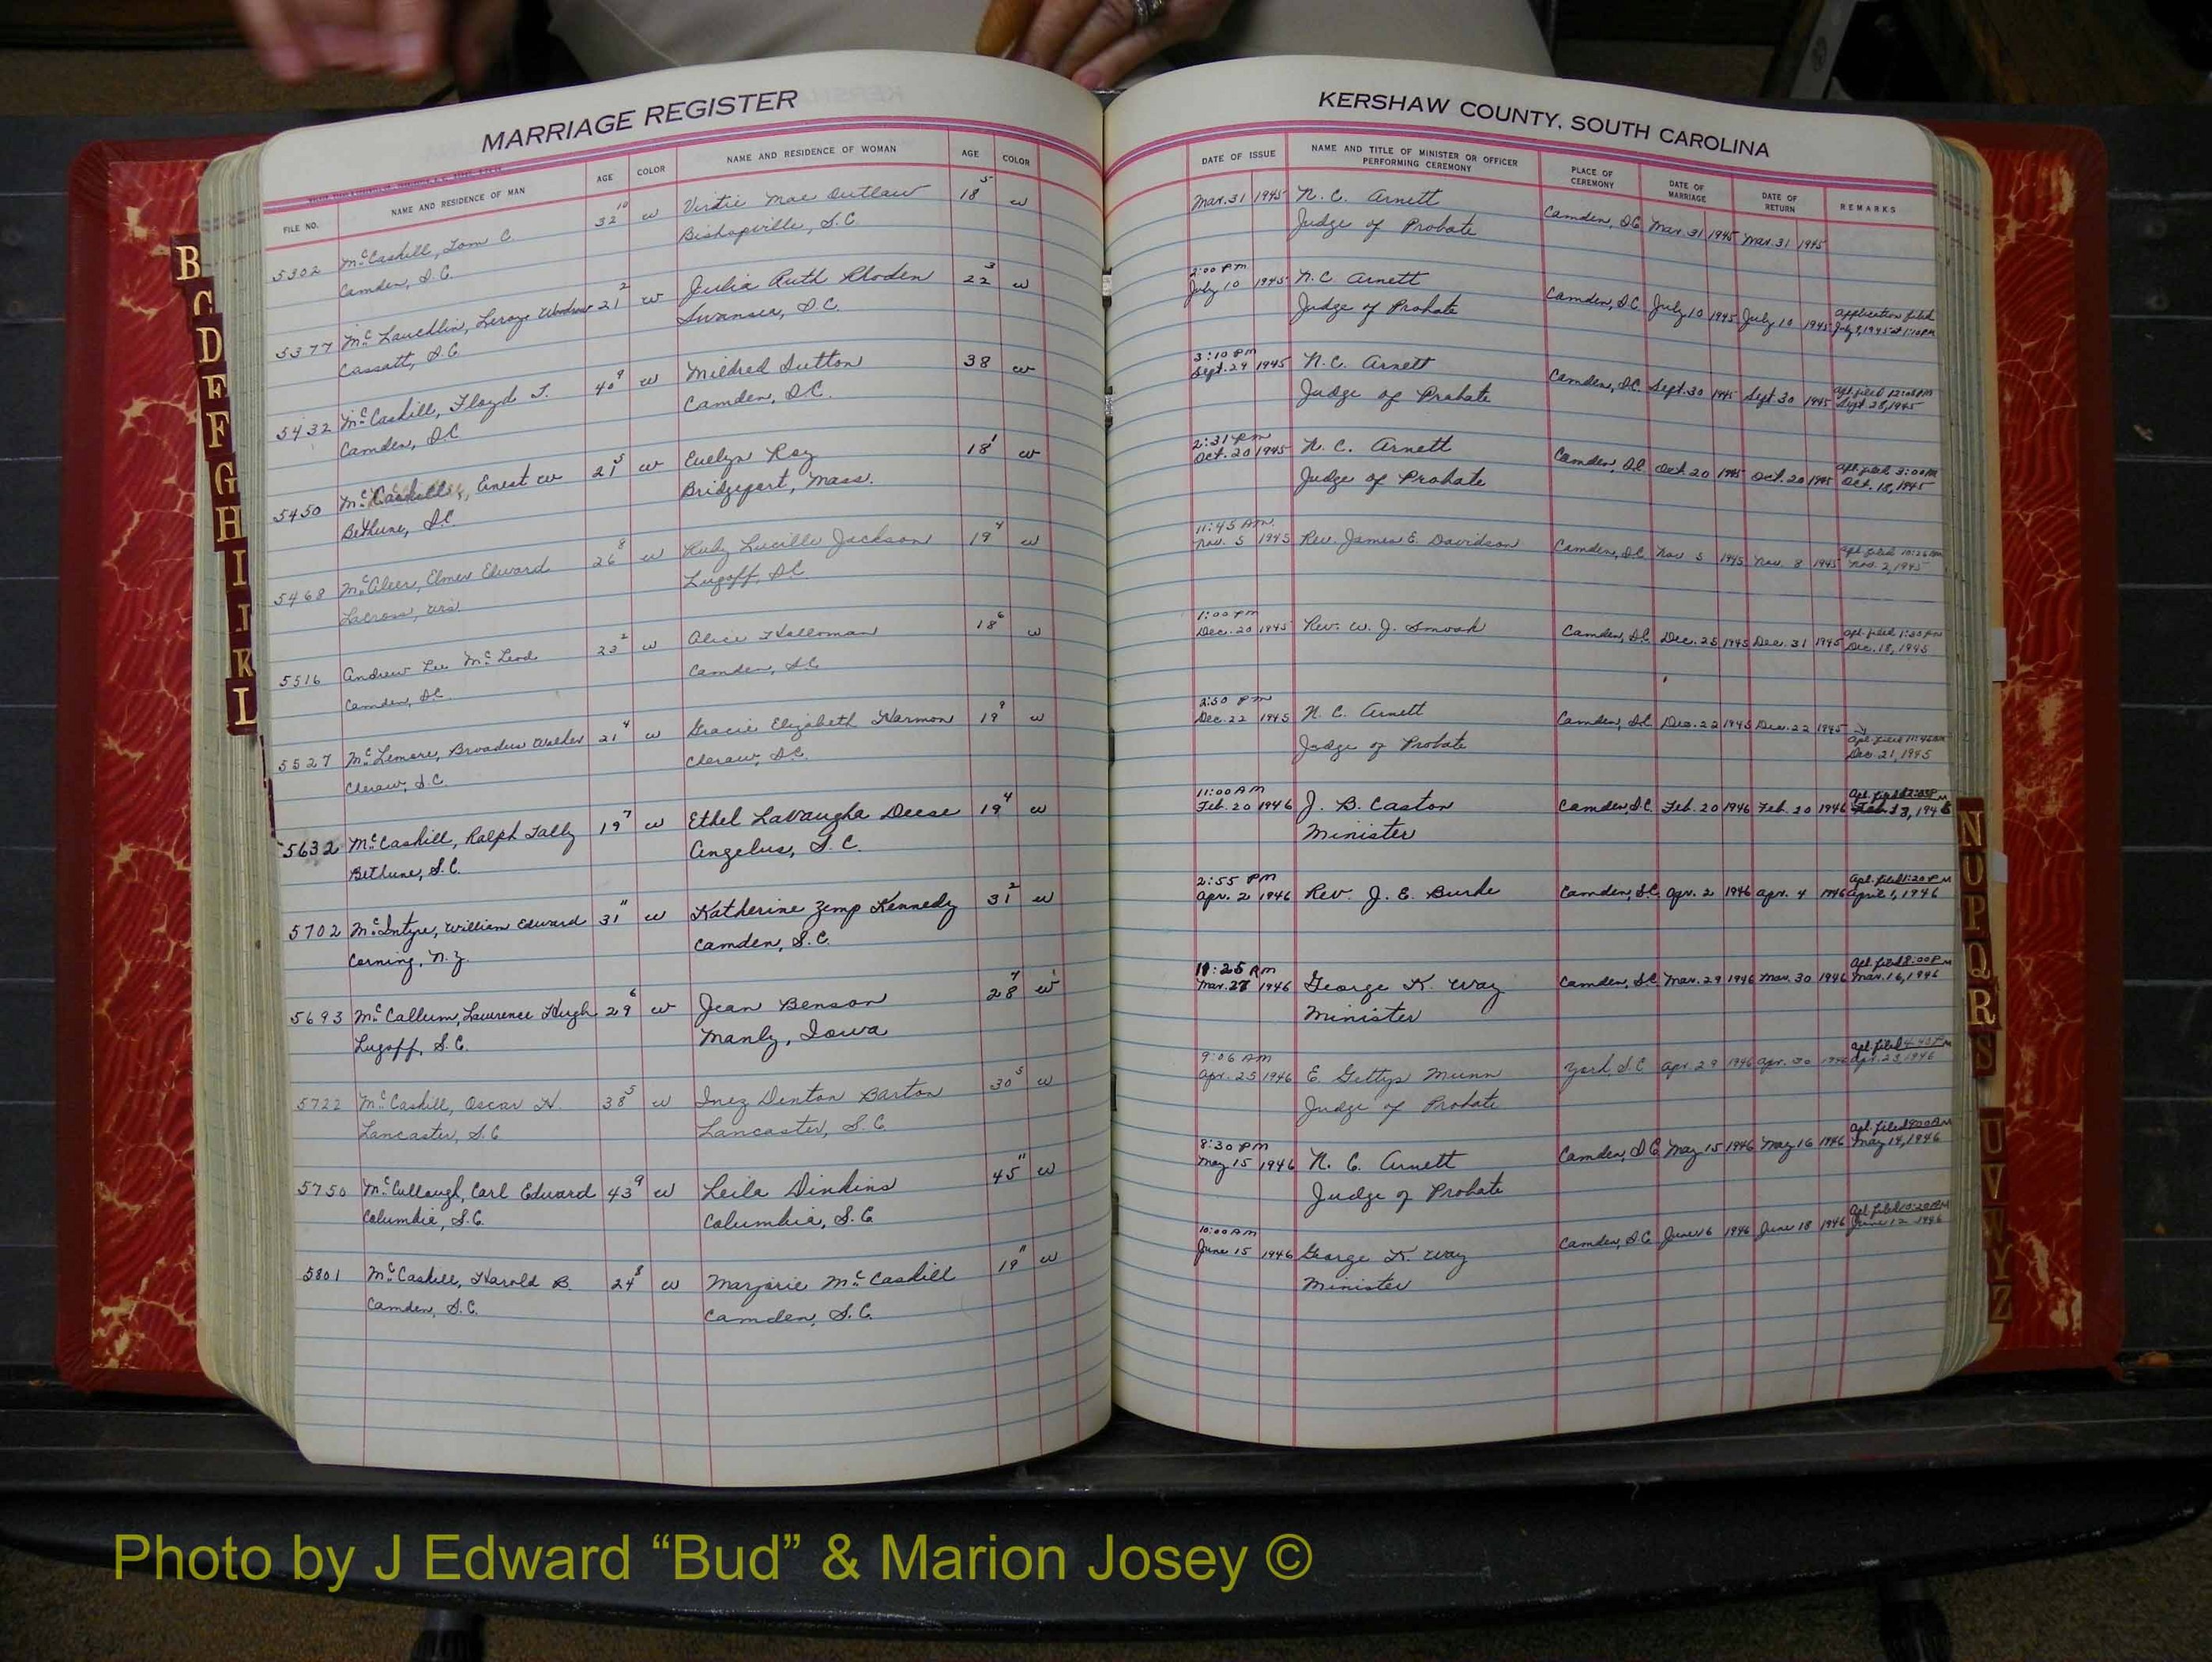 MARRIAGE REGISTER
FILE NO. NAME AND RESIDENCE OF MAN AGE COLOR NAME AND RESIDENCE OF WOMAN AGE COLOR
5302 McCaskill, Tom C. 32 10 w Virtie Mae Outlaw 18 5 w
Camden, S.C. Bishopville, S.C.
5377 McLauchlin, Leroy Woodrow 21 2 w Julia Ruth Rhoden 22 3 w
Cassatt, S.C. Swansea, S.C.
5432 McCaskill, Floyd T. 40 9 w Mildred Sutton 38 w
Camden, S.C. Camden, S.C.
5450 McCaskill, Ernest W 21 5 w Evelyn Roy 18 1 w
Bethune, S.C. Bridgeport, Mass.
5468 McAleer, Elmer Edward 26 8 w Ruby Lucille Jackson 19 4 w
Lacross, Wis Lugoff, S.C.
5516 Andrew Lee McLeod 23 2 w Alice Holloman 18 6 w
Camden, S.C. Camden, S.C.
5527 McLemore, Broadus Walker 21 4 w Gracie Elizabeth Harmon 19 9 w
Cheraw, S.C. Cheraw, S.C.
5632 McCaskill, Ralph Tally 19 7 w Ethel LaVaugha Deese 19 4 w
Bethune, S.C. Angelus, S.C.
5702 McIntyre, William Edward 31 11 w Katherine Zemp Kennedy 31 2 w
Corning, N.Y. Camden, S.C.
5693 McCallum, Lawrence Hugh 29 6 w Jean Benson 28 7 w
Lugoff, S.C. Manly, Iowa
5722 McCaskill, Oscar H. 38 5 w Inez Denton Barton 30 5 w
Lancaster, S.C. Lancaster, S.C.
5750 McCullough, Carl Edward 43 9 w Leila Dinkins 45 11 w
Columbia, S.C. Columbia, S.C.
5801 McCaskill, Harold B. 24 8 w Marjorie McCaskill 19 11 w
Camden, S.C. Camden, S.C.
KERSHAW COUNTY, SOUTH CAROLINA
DATE OF ISSUE NAME AND TITLE OF MINISTER OR OFFICER PERFORMING CEREMONY PLACE OF CEREMONY DATE OF MARRIAGE DATE OF RETURN REMARKS
Mar. 31 1945 N. C. Arnett Camden, S.C. Mar. 31 1945 Mar. 31 1945
Judge of Probate
2:00 PM
July 10 1945 N. C. Arnett Camden, S.C. July 10 1945 July 10 1945 Application filed
Judge of Probate July 9, 1945 at 1:10 PM
3:10 PM
Sept. 29 1945 N. C. Arnett Camden, S.C. Sept. 30 1945 Sept. 30 1945 apl. filed 12:08 PM
Judge of Probate Sept. 28, 1945
2:31 PM
Oct. 20 1945 N. C. Arnett Camden, S.C. Oct. 20 1945 Oct. 20 1945 apl. filed 3:00 PM
Judge of Probate Oct. 18, 1945
11:45 AM
Nov. 5 1945 Rev. James E. Davidson Camden, S.C. Nov 5 1945 Nov. 8 1945 apl. filed 10:26 AM
Nov. 2, 1945
1:00 PM
Dec. 20 1945 Rev. W. J. Smoak Camden, S.C. Dec. 25 1945 Dec. 31 1945 apl. filed PM
Dec. 18, 1945
2:50 PM
Dec. 22 1945 N. C. Arnett Camden, S.C. Dec. 22 1945 Dec. 22 1945
Judge of Probate apl. filed AM
Dec. 21, 1945
11:00 AM
Feb. 20 1946 J. B. Caston Camden, S.C. Feb. 20 1946 Feb. 20 1946 Apl. filed
Minister 1946
2:55 PM
Apr. 2 1946 Rev. J. E. Burke Camden, S.C. Apr. 2 1946 Apr. 4 1946 Apl. filed 1:20 PM
April 1, 1946
11:25 AM
Mar. 27 1946 George K. Way Camden, S.C. Mar. 29 1946 Mar. 30 1946 Apl. filed 8:00 PM
Minister Mar. 16, 1946
9:06 AM
Apr. 25 1946 E. Gettys Nunn York, S.C. Apr. 29 1946 Apr. 30 1946 Apl. filed PM
Judge of Probate Apr. 23, 1946
8:30 PM
May 15 1946 N. C. Arnett Camden, S.C. May 15 1946 May 16 1946 Apl. filed 9:00 AM
Judge of Probate May 14, 1946
10:00 AM
June 15 1946 George K. Way Camden, S.C. June 16 1946 June 18 1946 Apl. filed 10:20 AM
Minister June 12 1946
B
C
D
E
F
G
H
I
J
K
L
N
O
P
Q
R
S
U
V
W
Y
Z
Photo by J Edward “Bud” & Marion Josey ©